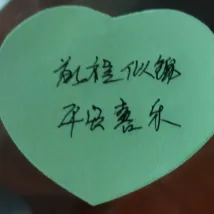 前程似锦
平安喜乐